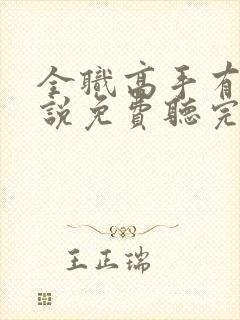 全職高手有
說免費聽完
王正瑞